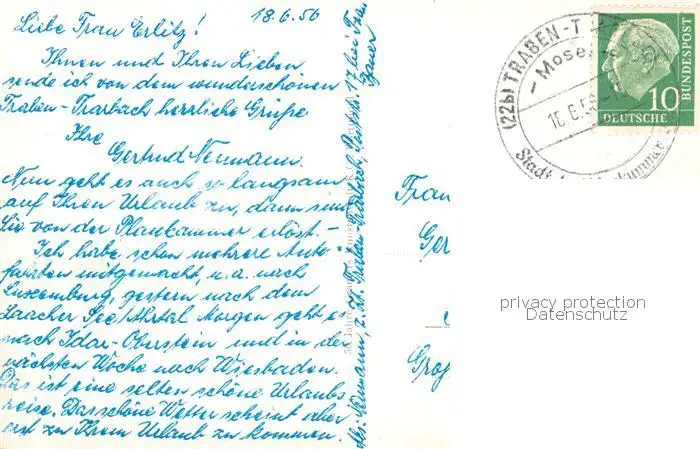 18.6.56
Liebe Frau Erlitz!
Ihnen und Ihren Lieben
sende ich von dem wunderschönen
Traben-Trarbach herrliche Grüße
Ihre
Gertrud Neumann.
Nun geht es auch so langsam
auf Ihren Urlaub zu, dann sind
Sie von der Plankammer erlöst.-
Ich habe schon mehrere Auto-
fahrten mitgemacht, u. a. nach
Luxemburg, gestern nach dem
Laacher See/Ahrtal Morgen geht es
nach Idar-Oberstein und in der
nächsten Woche nach Wiesbaden.
Das ist eine selten schöne Urlaubs
reise. Das schöne Wetter scheint aber
erst zu Ihrem Urlaub zu kommen.
Abs. Neumann, z. Zt. Traben-Trarbach, 17 bei Frau
Frau
Ger
Groß
(22b) TRABEN-T
-Mosel
Stadt
DEUTSCHE
BUNDESPOST
10
privacy protection
Datenschutz